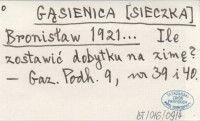 GĄSIENICA [SIECZKA]
Bronisław 1921... Ile
zostawić dobytku na zimę?
— Gaz. Podh. 9, nr 39 i 40.